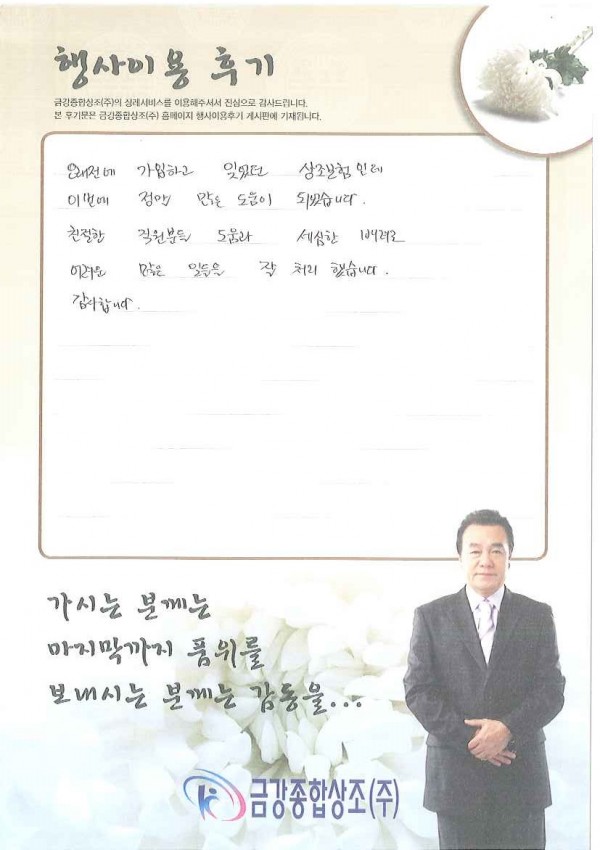 행사이용 후기
금강종합상조(주)의 상례서비스를 이용해주셔서 진심으로 감사드립니다.
본 후기문은 금강종합상조(주) 홈페이지 행사이용후기 게시판에 기재됩니다.
오래전에 가입하고 잊었던 상조보험인데
이번에 정말 많은 도움이 되었습니다.
친절한 직원분들 도움과 세심한 배려로
어려운 많은 일들을 잘 처리 했습니다.
감사합니다.
가시는 분께는
마지막까지 품위를
보내시는 분께는 감동을...
금강종합상조(주)